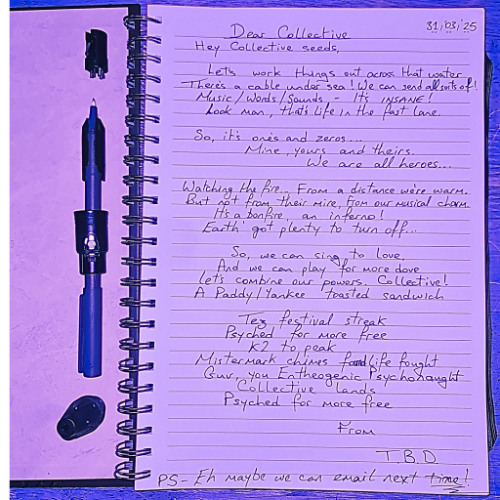 31/03/'25
Dear Collective
Hey Collective seeds,
Let's work things out across that water
There's a cable under sea! We can send all suits of!
Music/Words/Sounds - It's INSANE!
Look man, that's life in the fast lane.
So, it's ones and zeros...
Mine, yours and theirs.
We are all heroes...
Watching the fire... From a distance we're warm.
But not from their mire, from our musical charm.
It's a bonfire, an inferno!
Earth' got plenty to turn off...
So, we can sing to love,
And we can play for more dove
Let's combine our powers, Collective!
A Paddy/Yankee toasted sandwich
festival streak
Psyched for more free
K2 to peak
Mistermark chimes life fought
Guv, you Entheogenic Psychonaught
Collective lands
Psyched for more free
From
T.B.D.
PS- Eh maybe we can email next time!